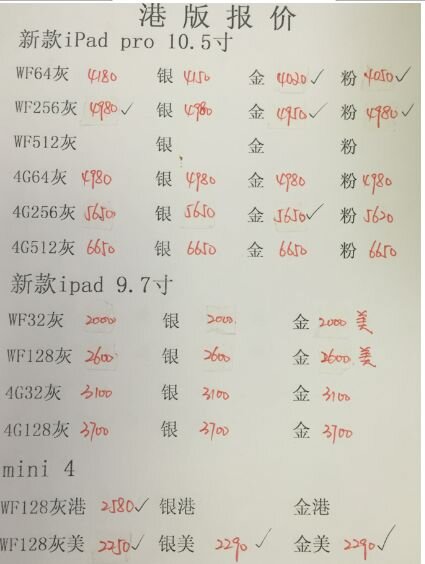 港版报价
新款iPad pro 10.5寸
WF64灰 4180 银 4150 金 4020✓ 粉 4050✓
WF256灰 4980✓ 银 4980 金 4950✓ 粉 4980✓
WF512灰 银 金 粉
4G64灰 4980 银 4980 金 4980 粉 4980
4G256灰 5650 银 5650 金 5650✓ 粉 5620
4G512灰 6650 银 6650 金 6650 粉 6650
新款ipad 9.7寸
WF32灰 2000 银 2000 金 2000 美
WF128灰 2600 银 2600 金 2600 美
4G32灰 3100 银 3100 金 3100
4G128灰 3700 银 3700 金 3700
mini 4
WF128灰港 2580✓ 银港 金港
WF128灰美 2250✓ 银美 2290✓ 金美 2290✓